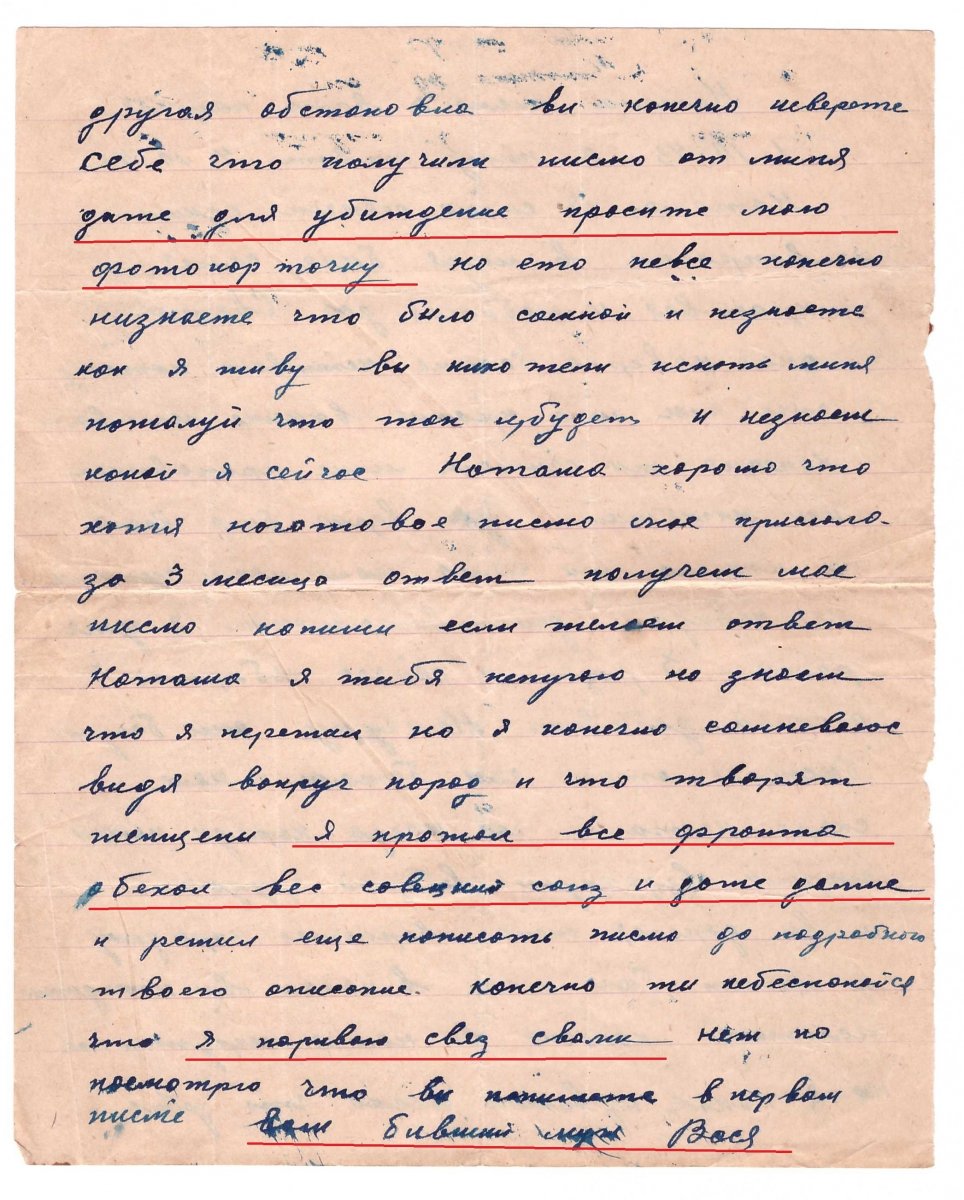 другая обстановка ви конечно неверете
себе что получили писмо от миня
даже для убиждение просите мою
фотокорточку но ето невсе конечно
низнаете что было сомной и незнаете
как я живу ви нихотели искать миня
пожалуй что так и будет и незнаеш
какой я сейчас Наташа хорошо что
хотя ноготовое писмо мое прислала.
за 3 месица ответ получеш мое
писмо напиши если желаеш ответ
Наташа я тибя непугаю но знаеш
что я пережал но я конечно сомневаюс
видя вокруч народ и что творят
женщены я прошол все фронта
обехал вес совецкий союз и даже далше
и решил еще написать писмо до подробного
твоего описание. конечно ти небеспокойся
что я париваю связ свами нет но
посмотрю что ви напишете в первом
писме Ваш бивший муж Вася